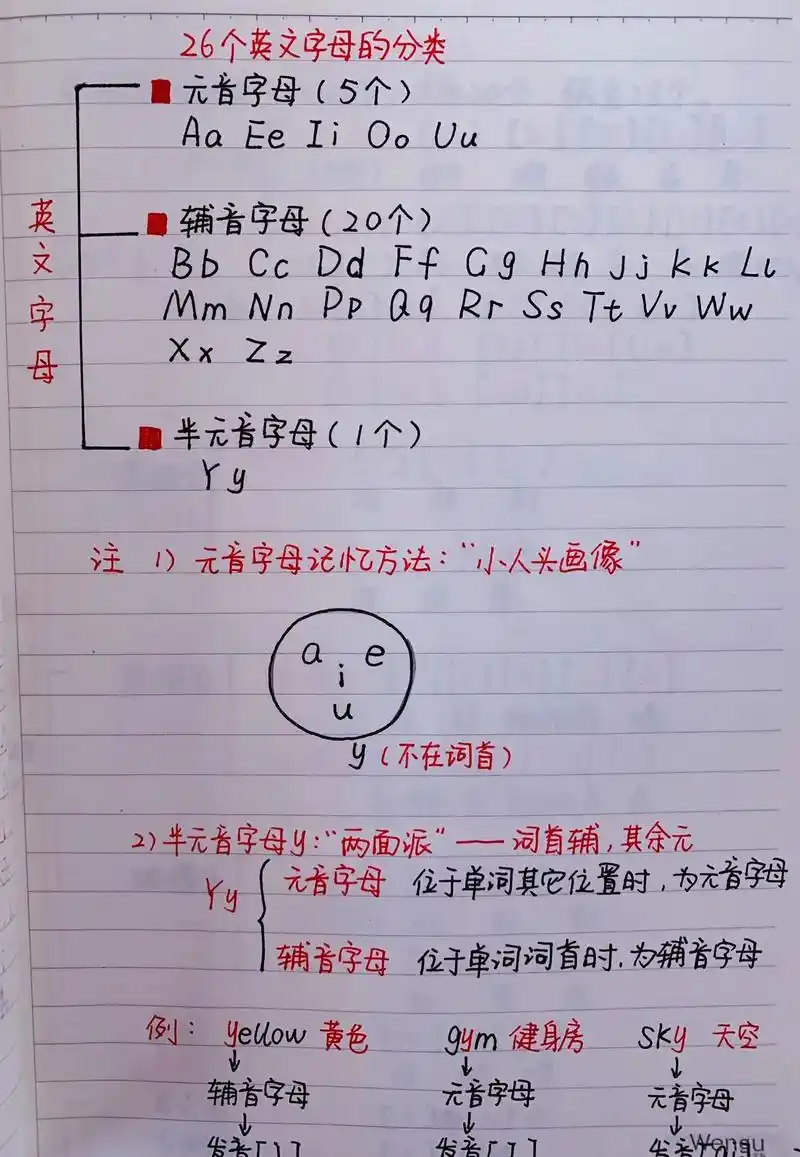 26个英文字母的分类
元音字母(5个)
Aa Ee Ii Oo Uu
英文字母
辅音字母(20个)
Bb Cc Dd Ff Gg Hh Jj Kk Ll
Mm Nn Pp Qq Rr Ss Tt Vv Ww
Xx Zz
半元音字母(1个)
Yy
注 1) 元音字母记忆方法:“小人头画像”
a e
i
u
y(不在词首)
2)半元音字母y:“两面派”——词首辅,其余元
Yy
元音字母 位于单词其它位置时,为元音字母
辅音字母 位于单词词首时,为辅音字母
例: yellow 黄色 gym 健身房 sky 天空
↓ ↓ ↓
辅音字母 元音字母 元音字母
↓ ↓ ↓
发音 发音 发音
Wengu